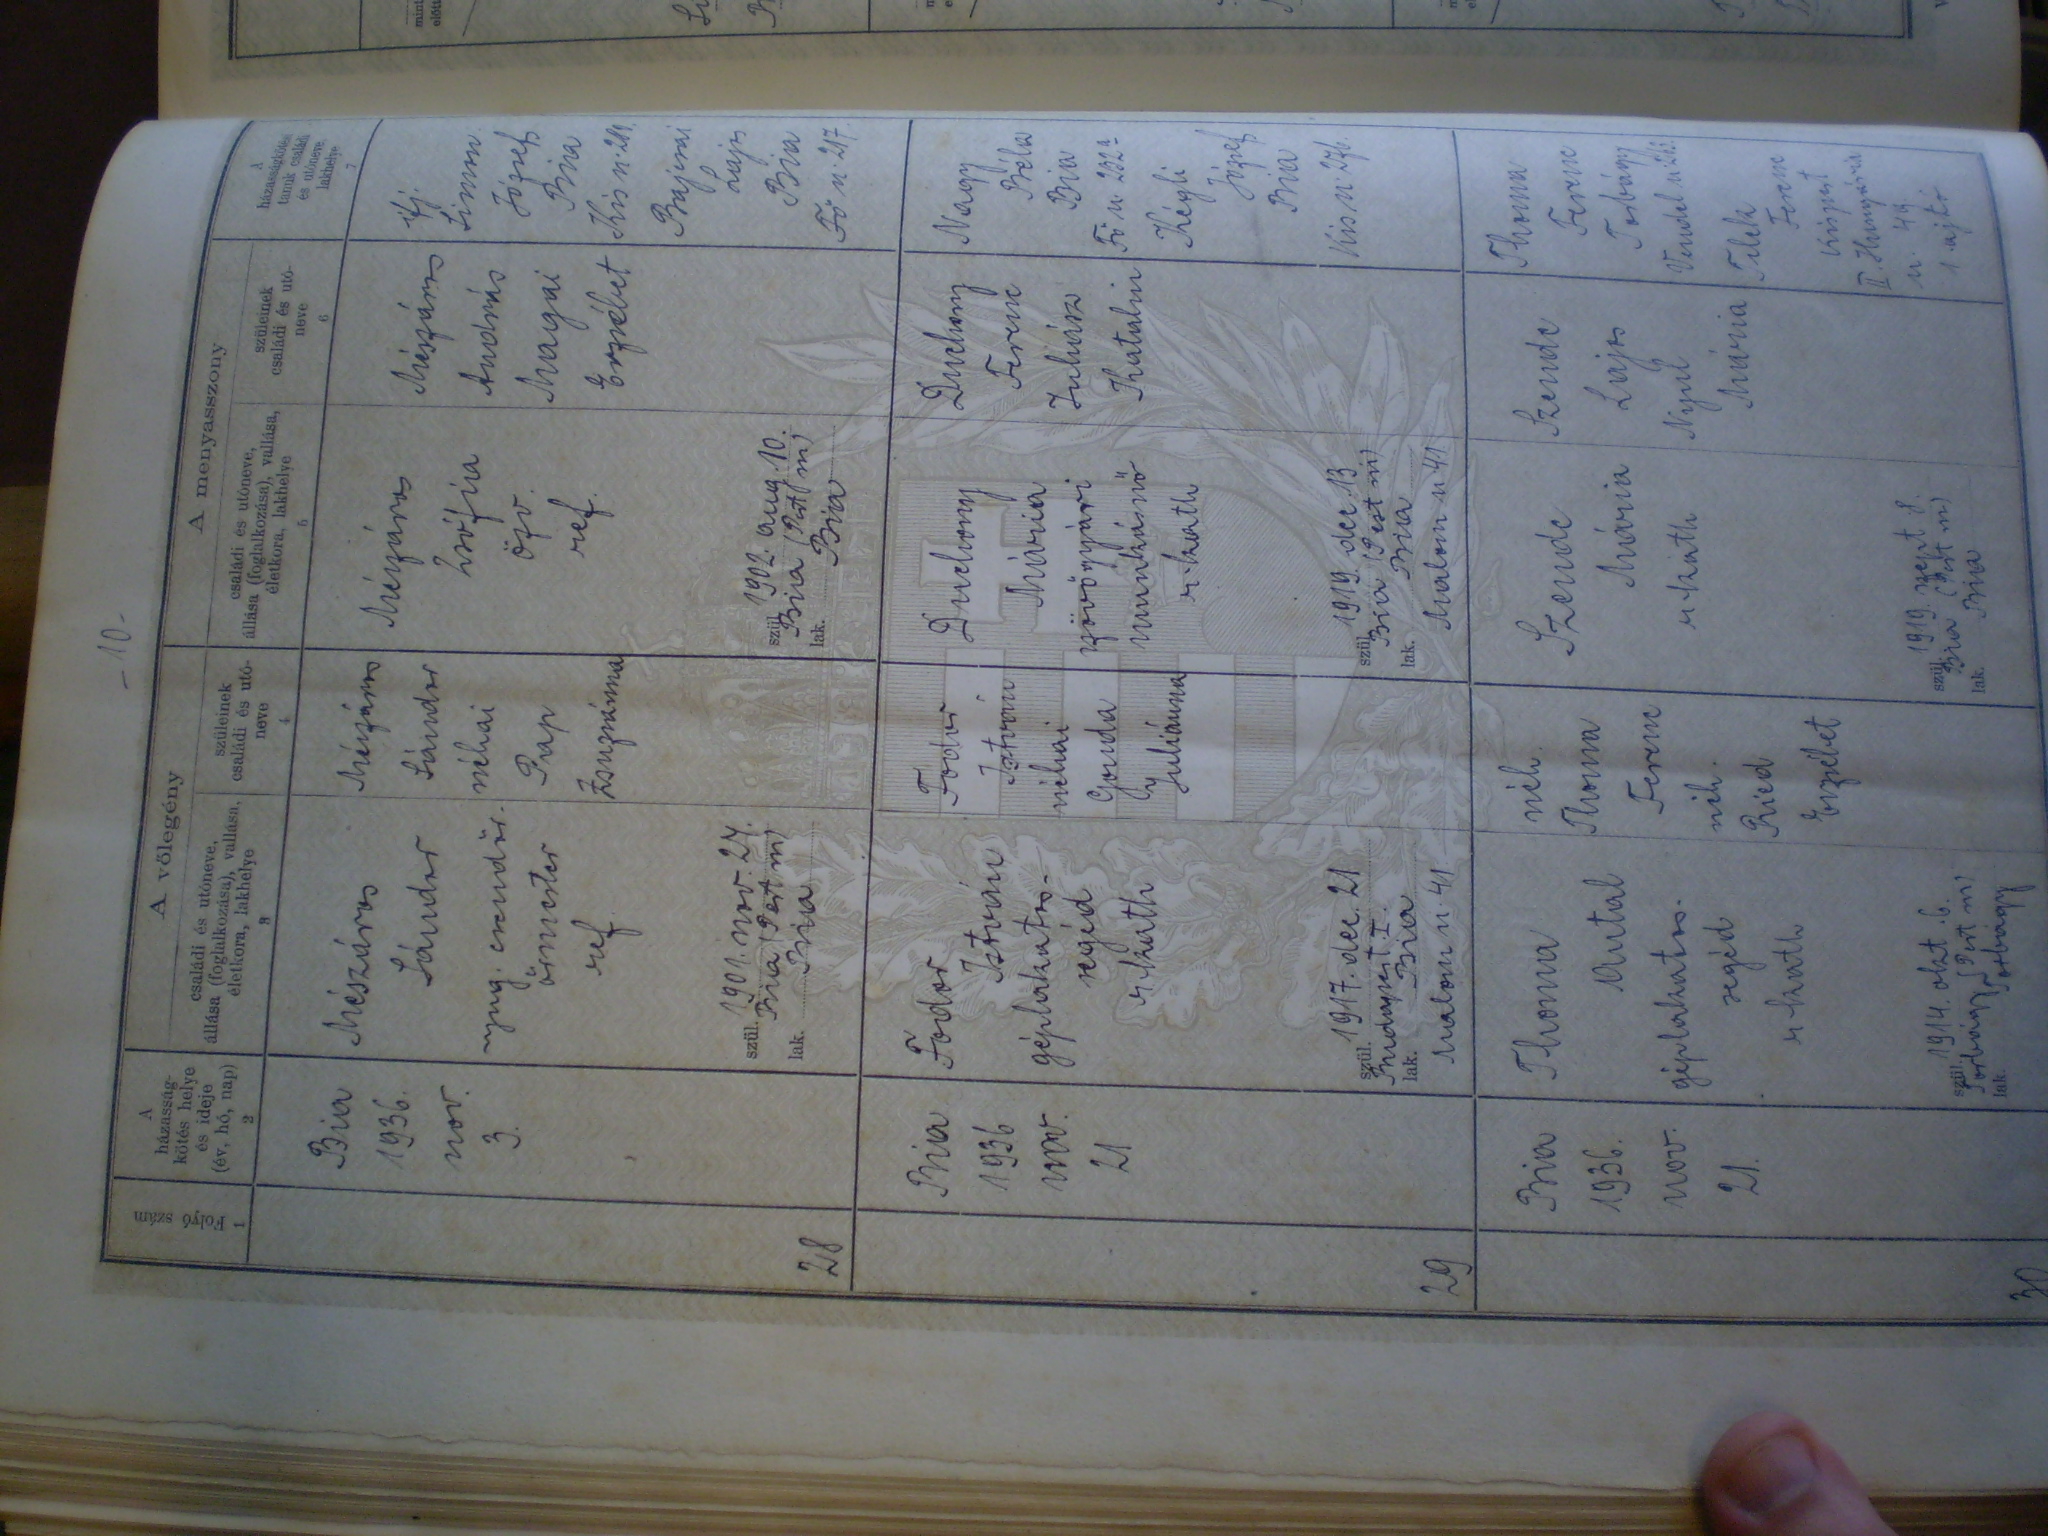 - 10 -
A vőlegény
A menyasszony
Folyó szám
1
A
házasság-
kötés helye
és ideje
(év, hó, nap)
2
családi és utóneve,
állása (foglalkozása), vallása,
életkora, lakhelye
3
szüleinek
családi és utó-
neve
4
családi és utóneve,
állása (foglalkozása), vallása,
életkora, lakhelye
5
szüleinek
családi és utó-
neve
6
A
házasságkötési
tanuk családi
és utóneve,
lakhelye
7
28
Bia
1936.
nov.
3.
Mészáros
Sándor
nyug. csendőr.
őrmester
ref.
szül. 1901. nov. 27.
Bia (Pest m)
lak. Bia
Mészáros
Sándor
néhai
Pap
Zsuzsánna
Mészáros
Zsófia
özv.
ref.
szül. 1902. aug. 10.
Bia (Pest m)
lak. Bia
Mészáros
András
Magyai
Erzsébet
ifj.
Simon
József
Bia
Kis u.
Bajcsai
Lajos
Bia
Fő u 217.
29
Bia
1936
nov.
21
Fodor
István
géplakatos-
segéd
r. kath
szül. 1917. dec. 21
Budapest I.
lak. Bia
Malom u. 41
Fodor
István
néhai
Gonda
Juliánna
Duchony
Mária
szövőgyári
munkásnő
r. kath
szül. 1919. dec. 13
Bia (Pest m)
lak. Bia
Malom u 41
Duchony
Ferenc
Juhász
Katalin
Nagy
Béla
Bia
Fő u 232
Kégli
József
Bia
Kis u 276.
30
Bia
1936.
nov.
21.
Thoma
Antal
géplakatos-
segéd
r. kath
szül. 1914. okt. 6.
Torbágy (Pest m)
lak. Torbágy
néh.
Thoma
Ferenc
néh.
Ried
Erzsébet
Szende
Mária
r. kath
szül. 1919. szept 8.
Bia (Pest m)
lak. Bia
Szende
Lajos
Nyul
Mária
Thoma
Ferenc
Torbágy
Vendel u
Telek
Ferenc
Kispest
II. Hungária
u. 44.
1 ajtó